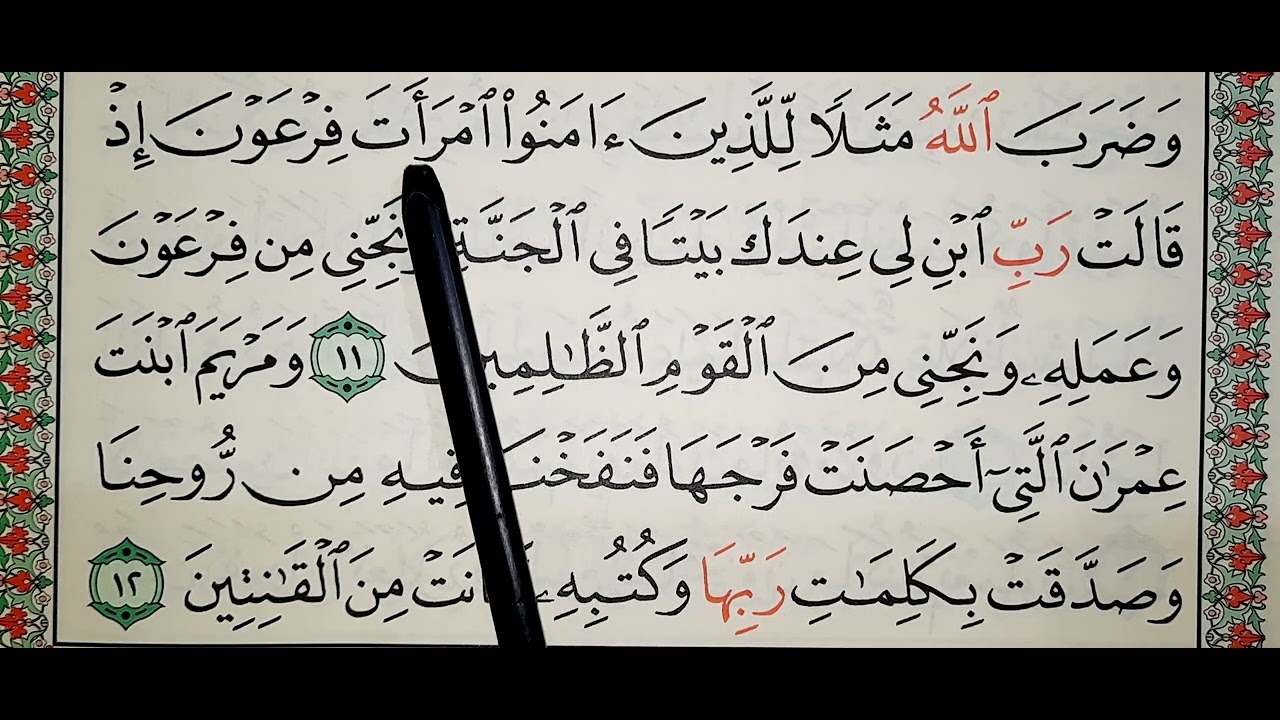 وَضَرَبَ ٱللَّهُ مَثَلًا لِّلَّذِينَ ءَامَنُوا۟ ٱمْرَأَتَ فِرْعَوْنَ إِذْ
قَالَتْ رَبِّ ٱبْنِ لِي عِندَكَ بَيْتًا فِي ٱلْجَنَّةِ وَنَجِّنِي مِن فِرْعَوْنَ
وَعَمَلِهِۦ وَنَجِّنِي مِنَ ٱلْقَوْمِ ٱلظَّٰلِمِينَ ١١ وَمَرْيَمَ ٱبْنَتَ
عِمْرَٰنَ ٱلَّتِيٓ أَحْصَنَتْ فَرْجَهَا فَنَفَخْنَا فِيهِ مِن رُّوحِنَا
وَصَدَّقَتْ بِكَلِمَٰتِ رَبِّهَا وَكُتُبِهِۦ وَكَانَتْ مِنَ ٱلْقَٰنِتِينَ ١٢